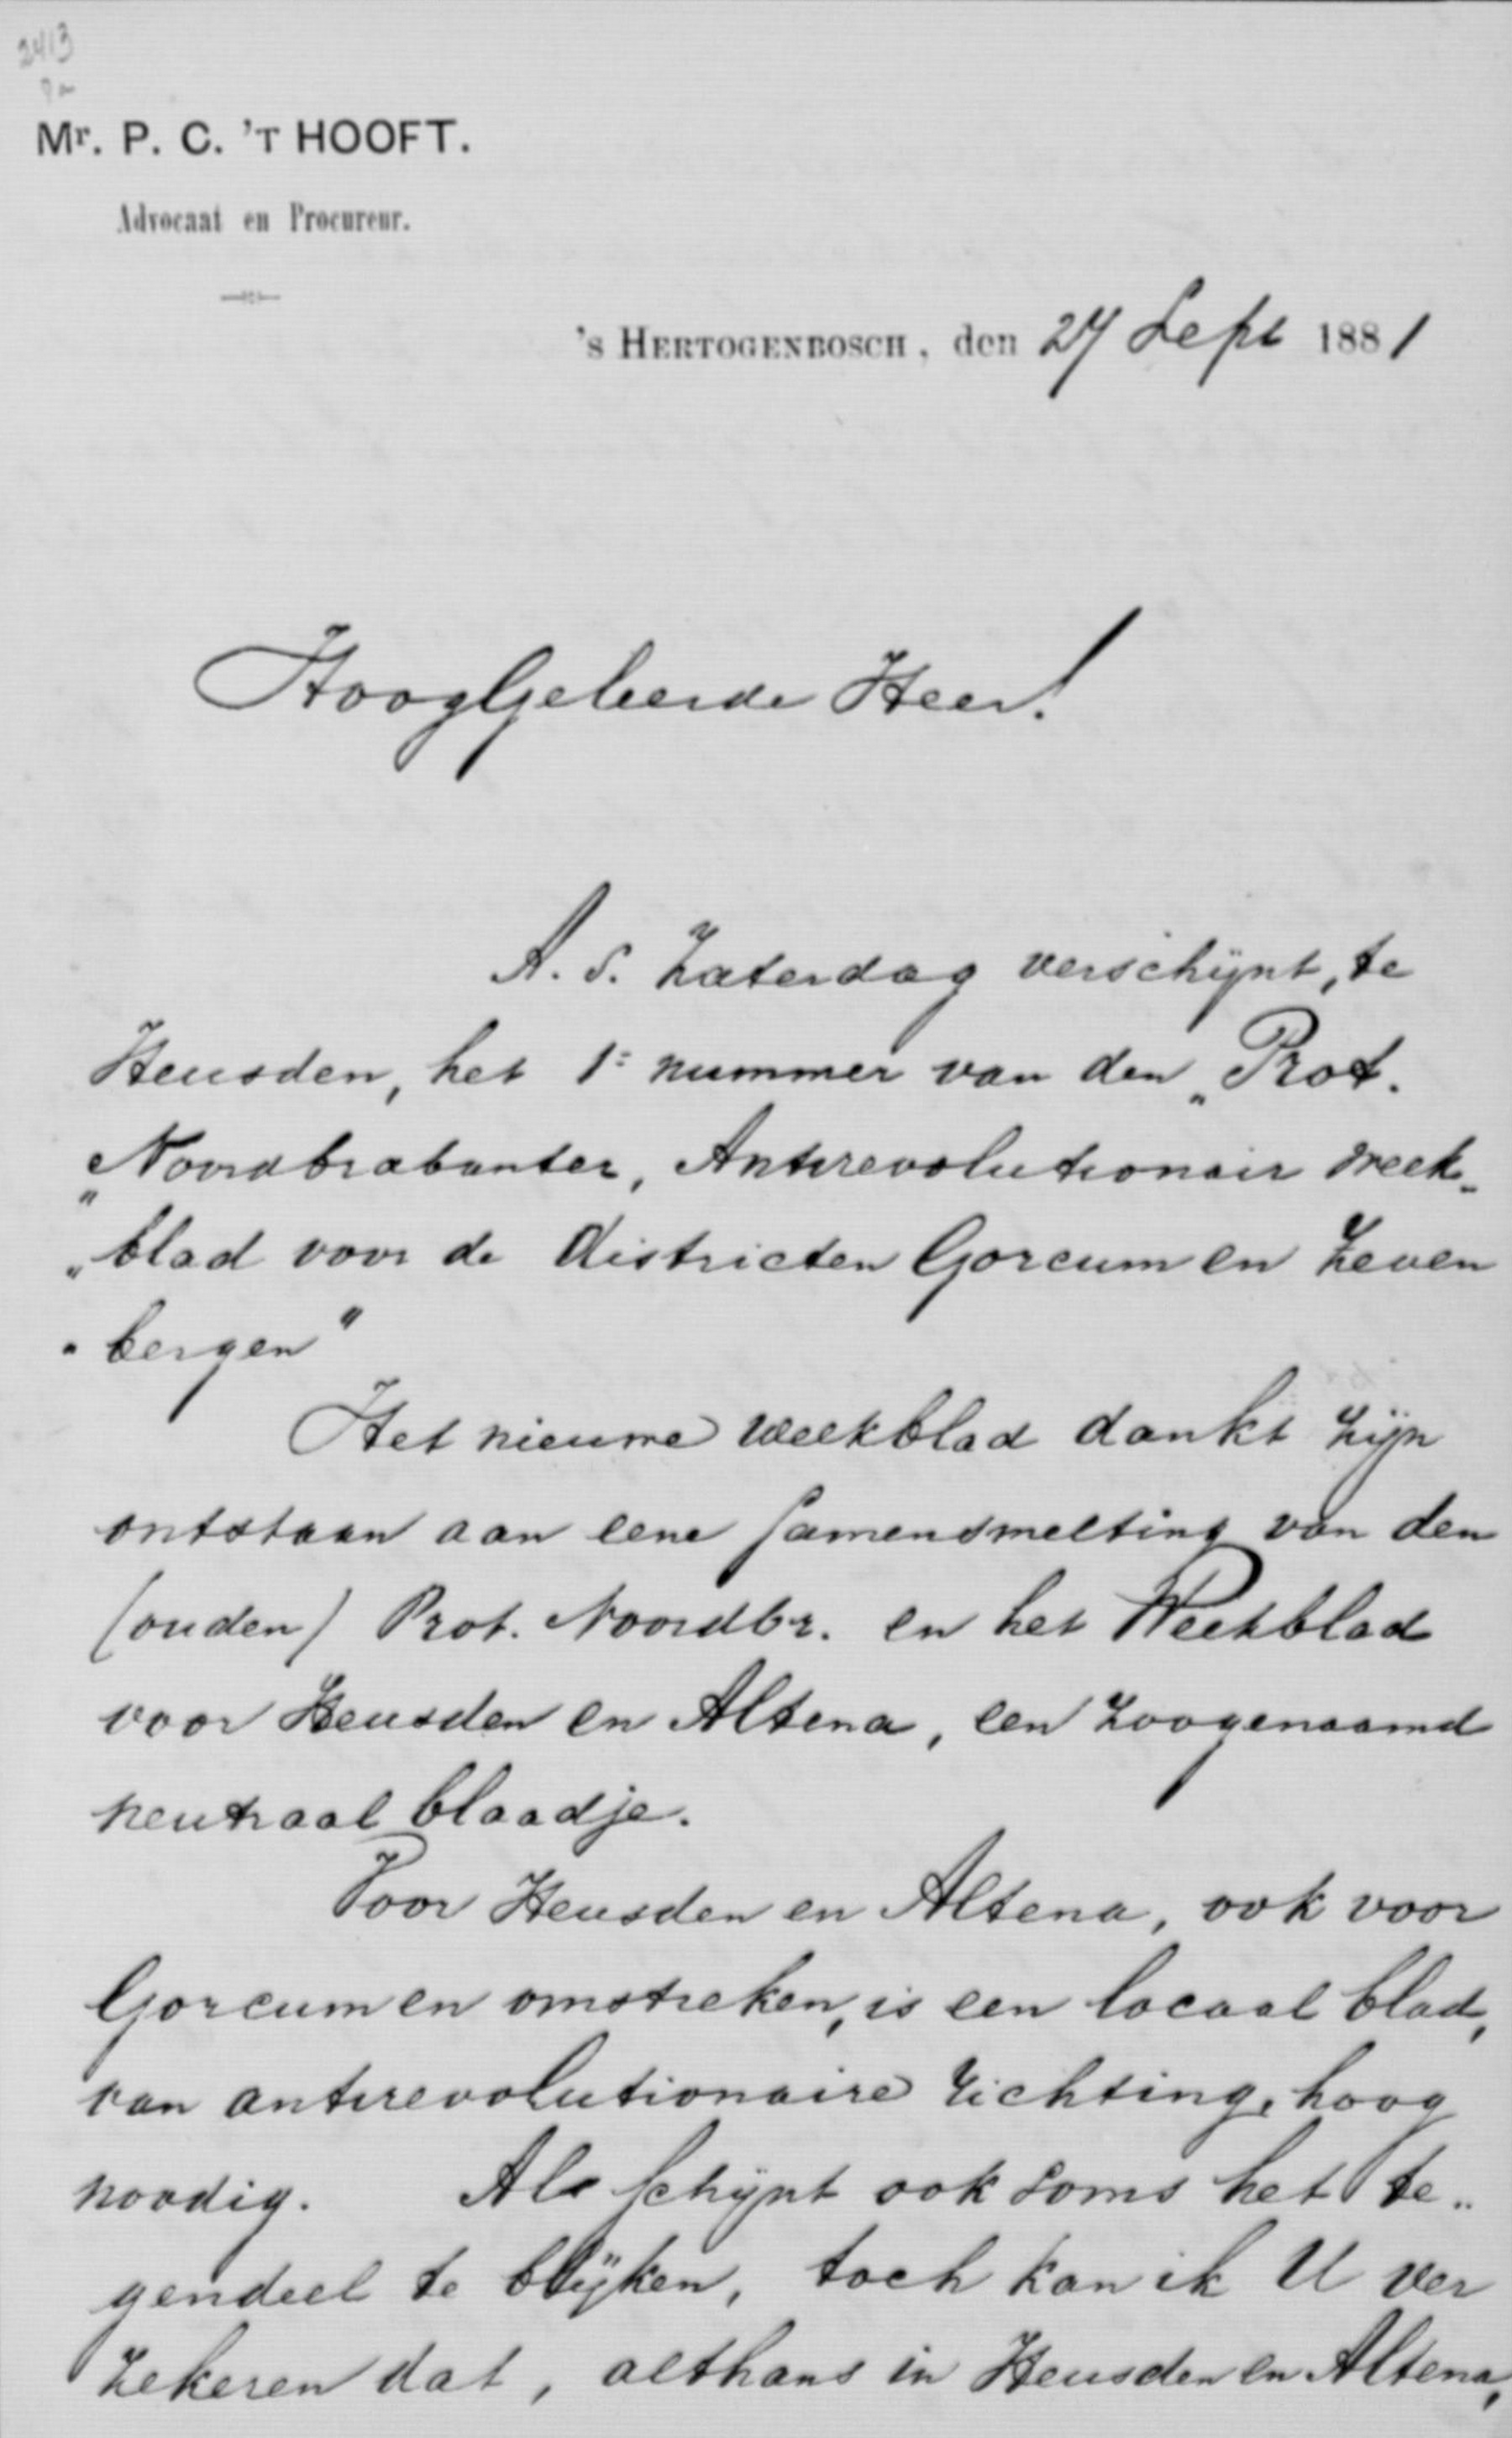 2413
Mr. P. C. 'T HOOFT.
Advocaat en Procureur.
's HERTOGENBOSCH, den 27 Sept 1881
HoogGeleerde Heer!
A. S. Zaterdag verschijnt, te
Heusden, het 1e nummer van den „Prot.
„Noordbrabanter, Antirevolutionair Week-
„blad voor de districten Gorcum en Zeven
„bergen"
Het nieuwe weekblad dankt zijn
ontstaan aan eene samensmelting van den
(ouden) Prot. Noordbr. en het Weekblad
voor Heusden en Altena, een zoogenaamd
neutraal blaadje.
Voor Heusden en Altena, ook voor
Gorcum en omstreken, is een locaal blad,
van antirevolutionaire richting, hoog
noodig. Als schijnt ook soms het te-
gendeel te blijken, toch kan ik U ver
zekeren dat, althans in Heusden en Altena,